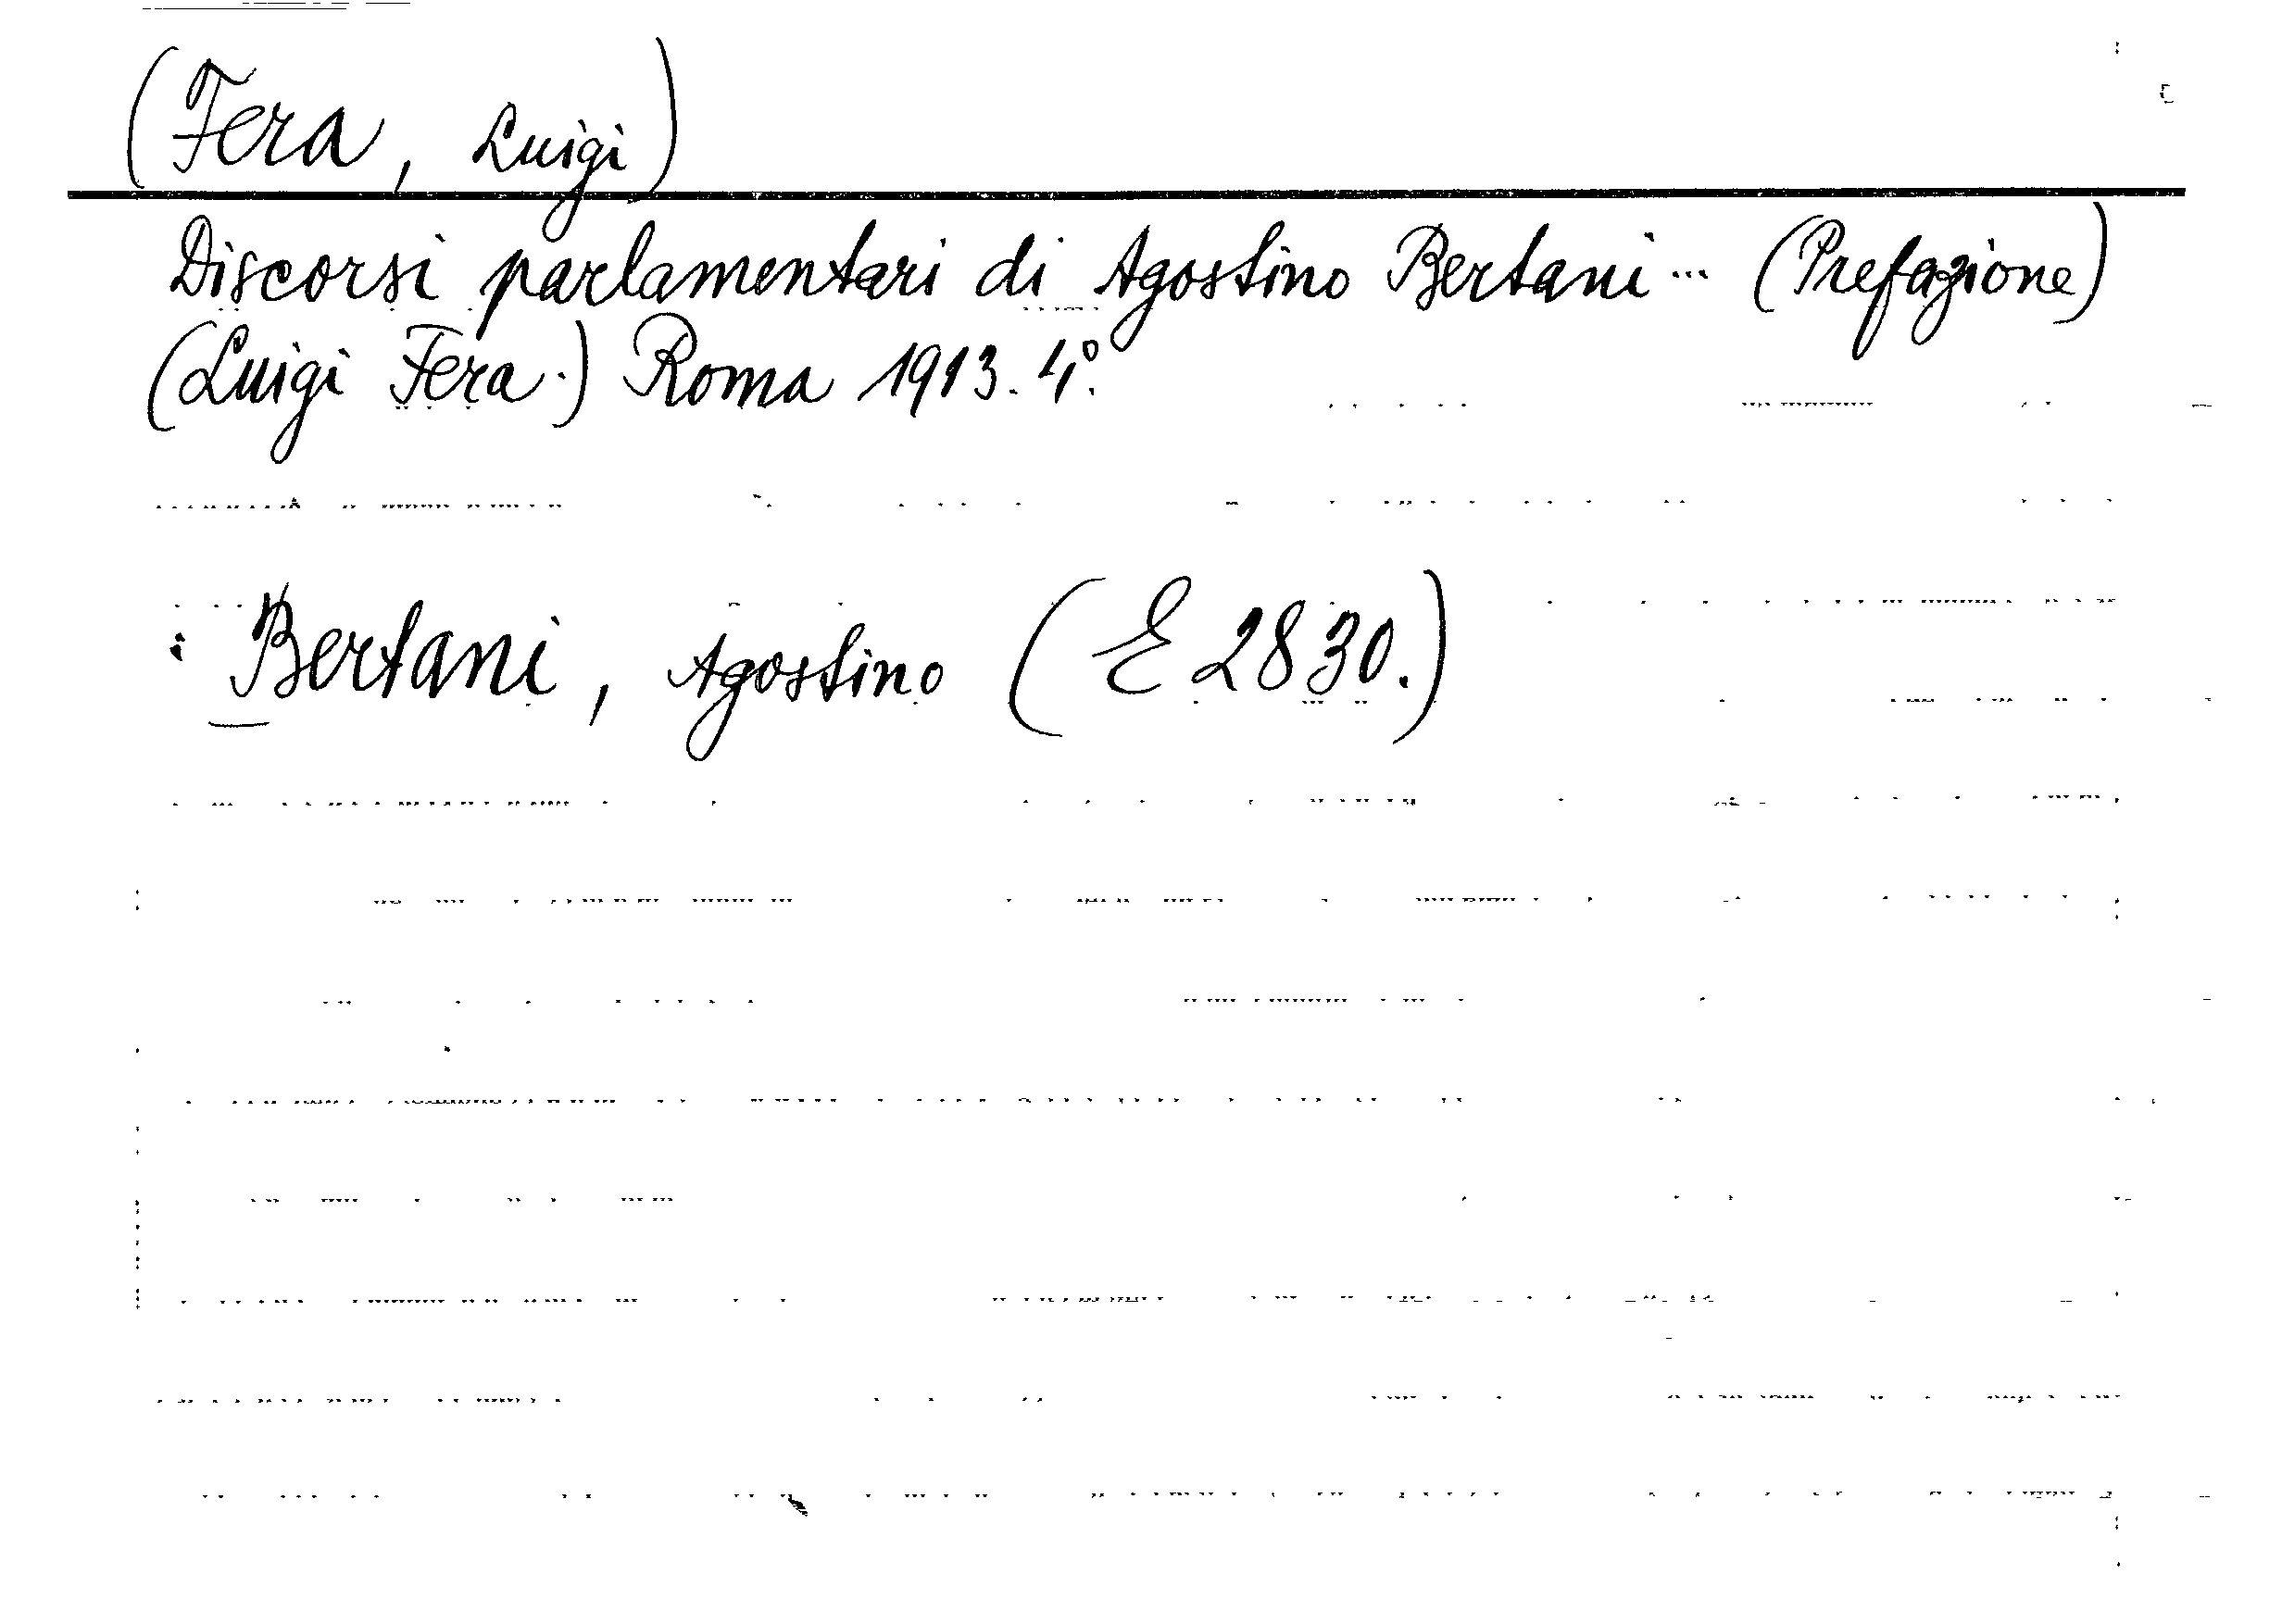 (Fera, Luigi)
Discorsi parlamentari di Agostino Bertani ... (Prefazione)
(Luigi Fera.) Roma 1913. 4°.
: Bertani, Agostino (E 2830.)